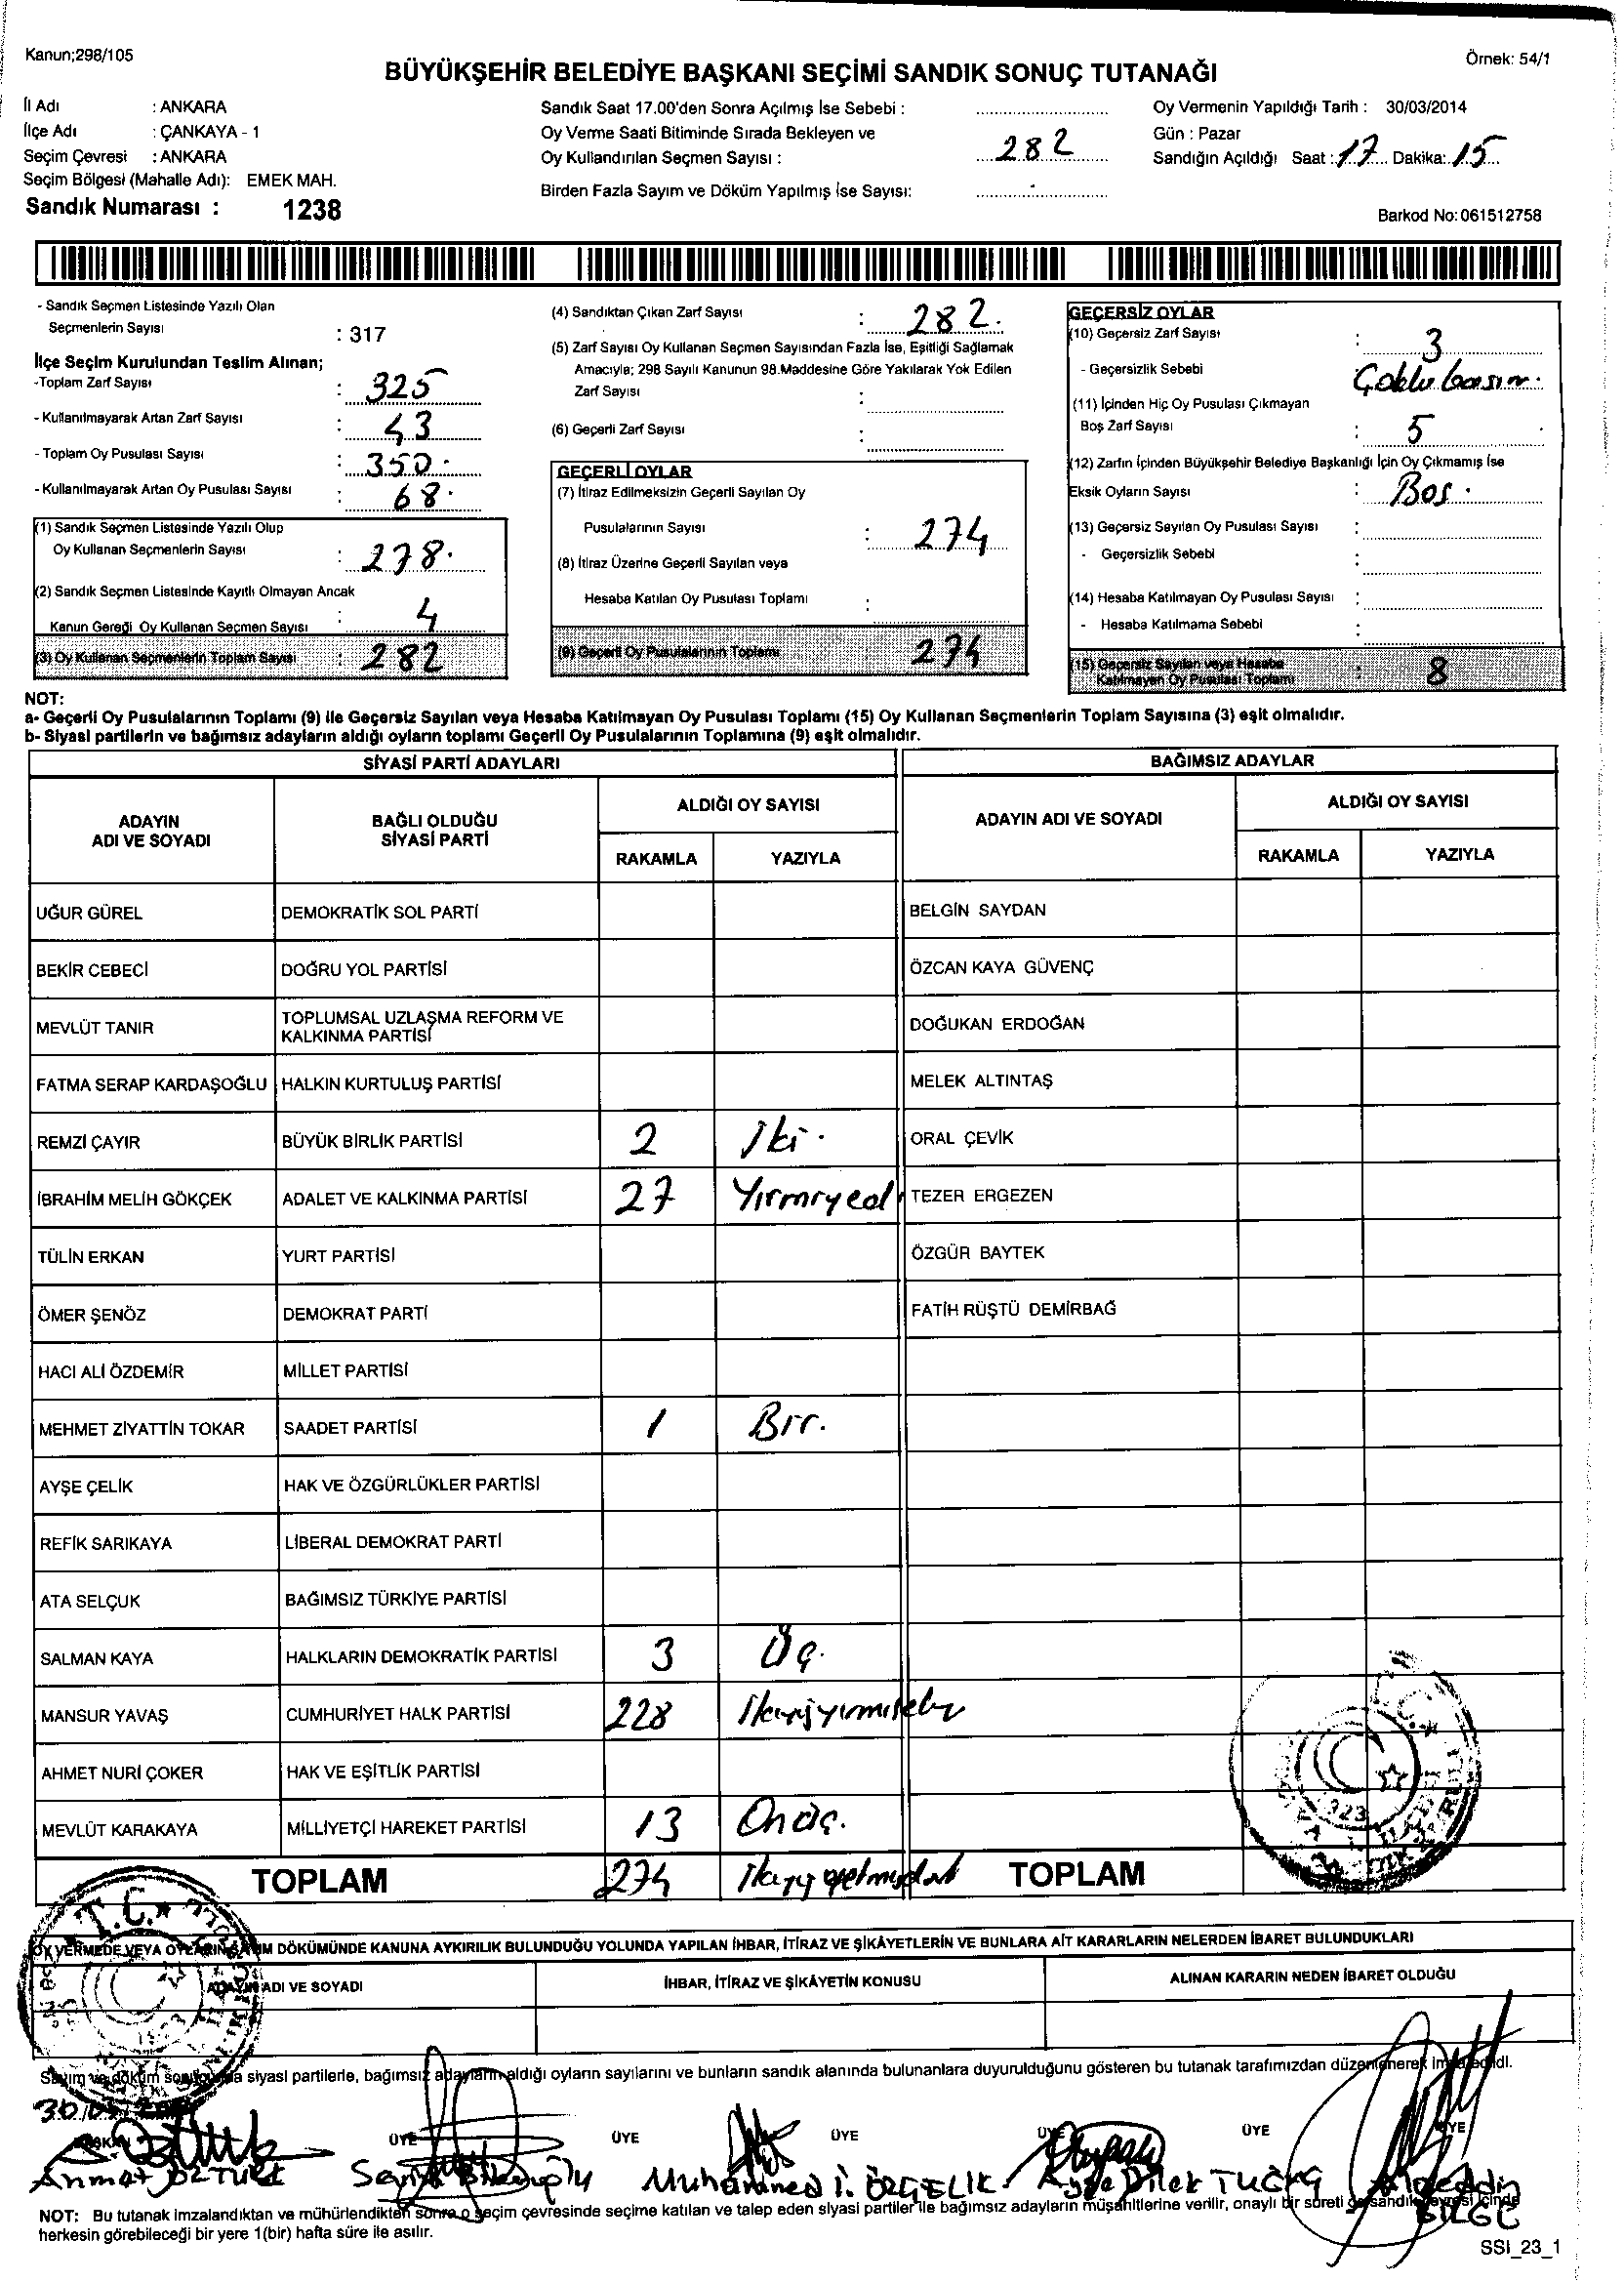 Kanun;298/105
Örnek: 54/1
BÜYÜKŞEHİR BELEDİYE BAŞKANI SEÇİMİ SANDIK SONUÇ TUTANAĞI
İl Adı : ANKARA
İlçe Adı : ÇANKAYA - 1
Seçim Çevresi : ANKARA
Seçim Bölgesi (Mahalle Adı): EMEK MAH.
Sandık Numarası : 1238
Sandık Saat 17.00'den Sonra Açılmış İse Sebebi :
Oy Verme Saati Bitiminde Sırada Bekleyen ve
Oy Kullandırılan Seçmen Sayısı : 282
Birden Fazla Sayım ve Döküm Yapılmış İse Sayısı:
Oy Vermenin Yapıldığı Tarih : 30/03/2014
Gün : Pazar
Sandığın Açıldığı Saat : 17 Dakika: 15
Barkod No: 061512758
- Sandık Seçmen Listesinde Yazılı Olan
Seçmenlerin Sayısı : 317
İlçe Seçim Kurulundan Teslim Alınan;
-Toplam Zarf Sayısı : 325
- Kullanılmayarak Artan Zarf Sayısı : 43
- Toplam Oy Pusulası Sayısı : 350
- Kullanılmayarak Artan Oy Pusulası Sayısı : 68
(1) Sandık Seçmen Listesinde Yazılı Olup
Oy Kullanan Seçmenlerin Sayısı : 278
(2) Sandık Seçmen Listesinde Kayıtlı Olmayan Ancak
Kanun Gereği Oy Kullanan Seçmen Sayısı : 4
(3) Oy Kullanan Seçmenlerin Toplam Sayısı : 282
(4) Sandıktan Çıkan Zarf Sayısı : 282
(5) Zarf Sayısı Oy Kullanan Seçmen Sayısından Fazla İse, Eşitliği Sağlamak
Amacıyla; 298 Sayılı Kanunun 98.Maddesine Göre Yakılarak Yok Edilen
Zarf Sayısı :
(6) Geçerli Zarf Sayısı :
GEÇERLİ OYLAR
(7) İtiraz Edilmeksizin Geçerli Sayılan Oy
Pusulalarının Sayısı : 274
(8) İtiraz Üzerine Geçerli Sayılan veya
Hesaba Katılan Oy Pusulası Toplamı :
(9) Geçerli Oy Pusulalarının Toplamı 274
GEÇERSİZ OYLAR
(10) Geçersiz Zarf Sayısı : 3
- Geçersizlik Sebebi Çoklu basım.
(11) İçinden Hiç Oy Pusulası Çıkmayan
Boş Zarf Sayısı : 5
(12) Zarfın İçinden Büyükşehir Belediye Başkanlığı İçin Oy Çıkmamış İse
Eksik Oyların Sayısı : Boş .
(13) Geçersiz Sayılan Oy Pusulası Sayısı :
- Geçersizlik Sebebi :
(14) Hesaba Katılmayan Oy Pusulası Sayısı :
- Hesaba Katılmama Sebebi :
(15) Geçersiz Sayılan veya Hesaba
Katılmayan Oy Pusulası Toplamı : 8
NOT:
a- Geçerli Oy Pusulalarının Toplamı (9) ile Geçersiz Sayılan veya Hesaba Katılmayan Oy Pusulası Toplamı (15) Oy Kullanan Seçmenlerin Toplam Sayısına (3) eşit olmalıdır.
b- Siyasi partilerin ve bağımsız adayların aldığı oyların toplamı Geçerli Oy Pusulalarının Toplamına (9) eşit olmalıdır.
SİYASİ PARTİ ADAYLARI
BAĞIMSIZ ADAYLAR
ADAYIN ADI VE SOYADI
BAĞLI OLDUĞU SİYASİ PARTİ
ALDIĞI OY SAYISI
RAKAMLA YAZIYLA
ADAYIN ADI VE SOYADI
ALDIĞI OY SAYISI
RAKAMLA YAZIYLA
UĞUR GÜREL DEMOKRATİK SOL PARTİ BELGİN SAYDAN
BEKİR CEBECİ DOĞRU YOL PARTİSİ ÖZCAN KAYA GÜVENÇ
MEVLÜT TANIR TOPLUMSAL UZLAŞMA REFORM VE KALKINMA PARTİSİ DOĞUKAN ERDOĞAN
FATMA SERAP KARDAŞOĞLU HALKIN KURTULUŞ PARTİSİ MELEK ALTINTAŞ
REMZİ ÇAYIR BÜYÜK BİRLİK PARTİSİ 2 İki . ORAL ÇEVİK
İBRAHİM MELİH GÖKÇEK ADALET VE KALKINMA PARTİSİ 27 Yirmiyedi TEZER ERGEZEN
TÜLİN ERKAN YURT PARTİSİ ÖZGÜR BAYTEK
ÖMER ŞENÖZ DEMOKRAT PARTİ FATİH RÜŞTÜ DEMİRBAĞ
HACI ALİ ÖZDEMİR MİLLET PARTİSİ
MEHMET ZİYATTİN TOKAR SAADET PARTİSİ 1 Bir.
AYŞE ÇELİK HAK VE ÖZGÜRLÜKLER PARTİSİ
REFİK SARIKAYA LİBERAL DEMOKRAT PARTİ
ATA SELÇUK BAĞIMSIZ TÜRKİYE PARTİSİ
SALMAN KAYA HALKLARIN DEMOKRATİK PARTİSİ 3 Üç.
MANSUR YAVAŞ CUMHURİYET HALK PARTİSİ 228
AHMET NURİ ÇOKER HAK VE EŞİTLİK PARTİSİ
MEVLÜT KARAKAYA MİLLİYETÇİ HAREKET PARTİSİ 13 Onüç.
TOPLAM 274 TOPLAM
T.C.
OY VERMEDE VEYA OYLARIN SAYIM DÖKÜMÜNDE KANUNA AYKIRILIK BULUNDUĞU YOLUNDA YAPILAN İHBAR, İTİRAZ VE ŞİKÂYETLERİN VE BUNLARA AİT KARARLARIN NELERDEN İBARET BULUNDUKLARI
ADAYIN ADI VE SOYADI İHBAR, İTİRAZ VE ŞİKÂYETİN KONUSU ALINAN KARARIN NEDEN İBARET OLDUĞU
Sayım ve döküm sonucunda siyasi partilerle, bağımsız adayların aldığı oyların sayılarını ve bunların sandık alanında bulunanlara duyurulduğunu gösteren bu tutanak tarafımızdan düzenlenerek imza edildi.
BAŞKAN ÜYE ÜYE ÜYE ÜYE ÜYE ÜYE
Ahmet ÖZTÜRK Muhammed İ. ÖZÇELİK Ayşe Dilek TUĞRA Alaeddin BİLGE
NOT: Bu tutanak imzalandıktan ve mühürlendikten sonra o seçim çevresinde seçime katılan ve talep eden siyasi partiler ile bağımsız adayların müşahitlerine verilir, onaylı bir sureti de sandık çevresi içinde
herkesin görebileceği bir yere 1(bir) hafta süre ile asılır.
SSI_23_1